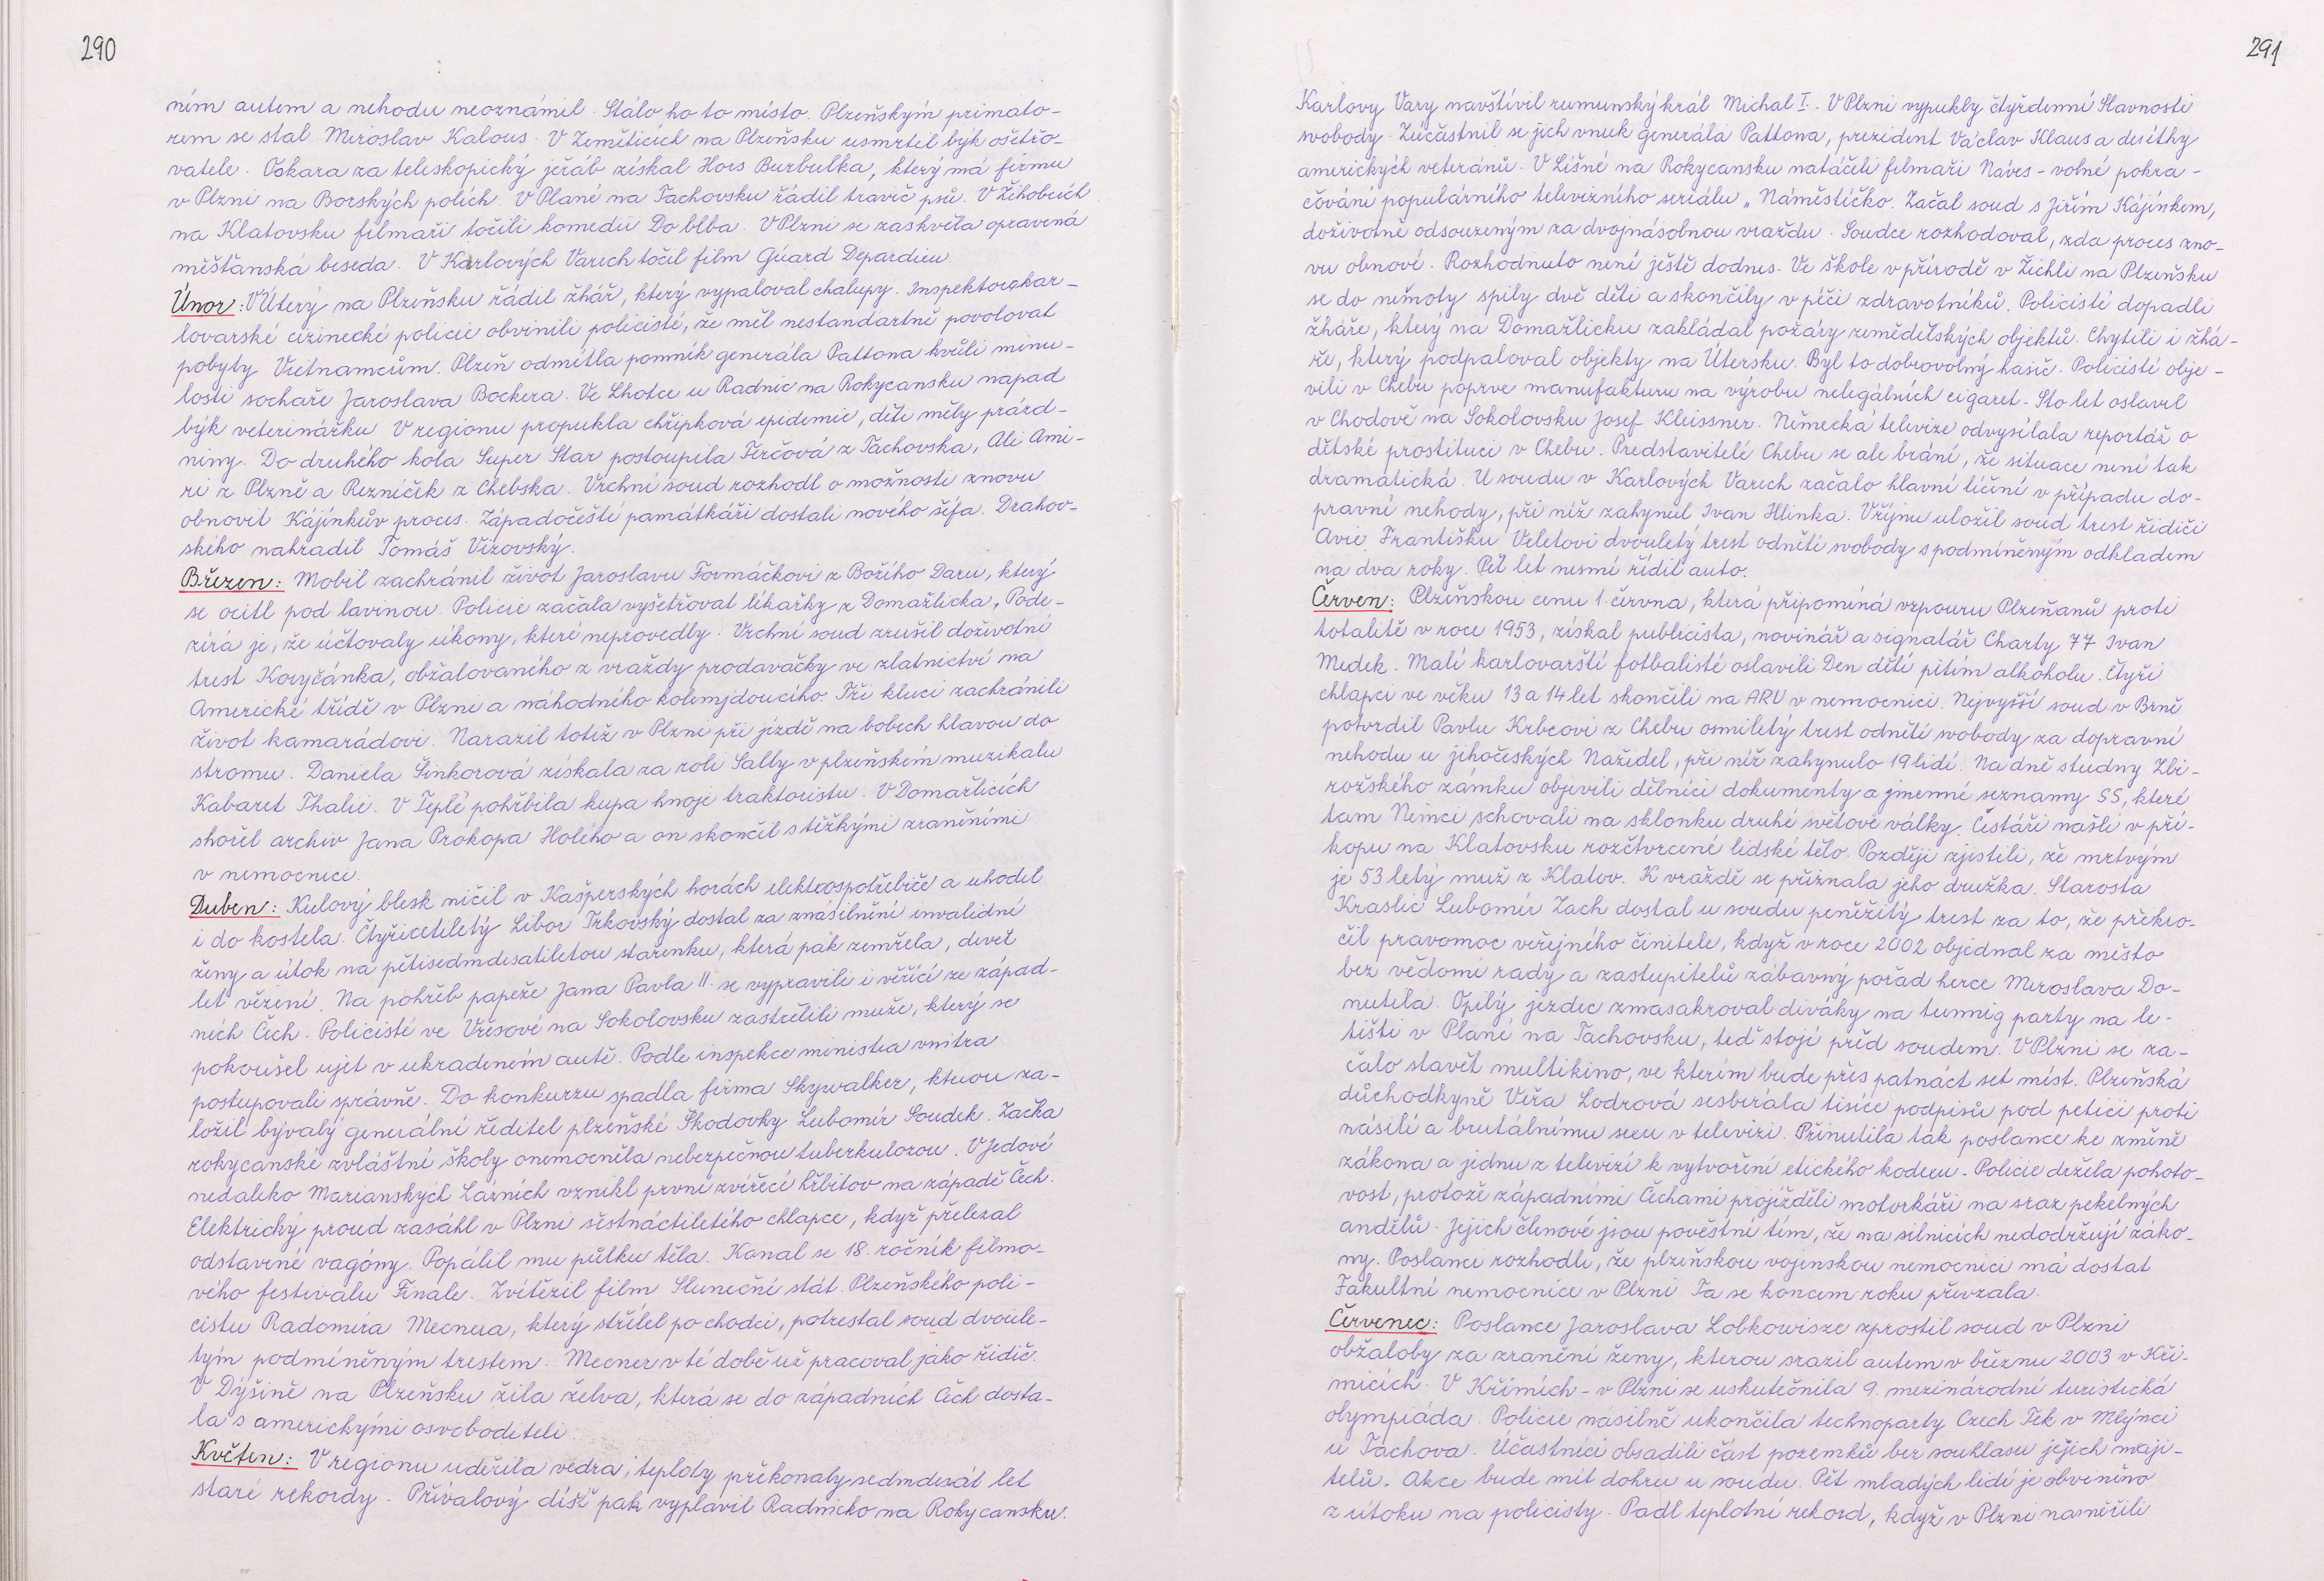 290
ním autem a nehodu neoznámil. Stálo ho to místo. Plzeňským primato-
rem se stal Miroslav Kalous. V Zeměticích na Plzeňsku usmrtil býk ošetřo-
vatele. Oskara za teleskopický jeřáb získal Hors Burbulka, který má firmu
v Plzni na Borských polích. V Plané na Tachovsku řádil travič psů. V Žihobcích
na Klatovsku filmaři točili komedii Do blba. V Plzni se zaskvěla opravená
měšťanská beseda. V Karlových Varech točil film Gúard Depardieu.
Únor: V Úterý na Plzeňsku řádil žhář, který vypaloval chalupy. Inspektora kar-
lovarské cizinecké policie obvinili policisté, že měl nestandartně povolovat
pobyty Vietnamcům. Plzeň odmítla pomník generála Pattona kvůli minu-
losti sochaře Jaroslava Bockera. Ve Lhotce u Radnic na Rokycansku napad
býk veterinářku V regionu propukla chřipková epidemie, děti měly prázd-
niny. Do druhého kola Super Star postoupila Ferčová z Tachovska, Ali Ami-
ri z Plzně a Rezníček z Chebska. Vrchní soud rozhodl o možnosti znovu
obnovit Kájínkův proces. Západočeští památkáři dostali nového šéfa. Drahov-
ského nahradil Tomáš Vizovský.
Březen: Mobil zachránil život Jaroslavu Formáčkovi z Božího Daru, který
se ocitl pod lavinou. Policie začala vyšetřovat lékařky z Domažlicka. Pode-
zírá je, že účtovaly úkony, které neprovedly. Vrchní soud zrušil doživotní
trest Koryčánka, obžalovaného z vraždy prodavačky ve zlatnictví na
Americké třídě v Plzni a náhodného kolemjdoucího. Tři kluci zachránili
život kamarádovi. Narazil totiž v Plzni při jízdě na bobech hlavou do
stromu. Daniela Šinkorová získala za roli Sally v plzeňském muzikalu
Kabaret Thalie. V Teplé pohřbila kupa hnoje traktoristu. V Domažlicích
shořel archiv Jana Prokopa Holého a on skončil s těžkými zraněními
v nemocnici.
Duben: Kulový blesk ničil v Kašperských horách elektrospotřebiče a uhodil
i do kostela. Čtyřicetiletý Libor Trkovský dostal za znásilnění invalidní
ženy a útok na pětisedmdesatiletou stařenku, která pak zemřela, devět
let vězení. Na pohřeb papeže Jana Pavla II. se vypravili i věřící ze západ-
ních Čech. Policisté ve Vřesové na Sokolovsku zastřelili muže, který se
pokoušel ujet v ukradeném autě. Podle inspekce ministra vnitra
postupovali správně. Do konkurzu spadla firma Skywalker, kterou za-
ložil bývalý generální ředitel plzeňské Škodovky Lubomír Soudek. Žačka
rokycanské zvláštní školy onemocněla nebezpečnou tuberkulozou. V Jedové
nedaleko Marianských Lázních vznikl první zvířecí hřbitov na západě Čech.
Elektrický proud zasáhl v Plzni šestnáctiletého chlapce, když přelezal
odstavné vagóny. Popálil mu půlku těla. Konal se 18. ročník filmo-
vého festivalu Finale. Zvítězil film Sluneční stát. Plzeňského poli-
cistu Radomíra Mecnera, který střílel po chodci, potrestal soud dvoule-
tým podmíněným trestem. Mecner v té době už pracoval jako řidič.
V Dýšině na Plzeňsku žila želva, která se do západních Čech dosta-
la s americkými osvoboditeli.
Květen: V regionu udeřila vedra, teploty překonaly sedmdesát let
staré rekordy. Přívalový díšť pak vyplavil Radnicko na Rokycansku.
291
Karlovy Vary navštívil rumunský král Michal I. V Plzni vypukly čtyřdenní Slavnosti
svobody. Zúčastnil se jich vnuk generála Pattona, prezident Václav Klaus a desítky
amerických veteránů. V Líšné na Rokycansku natáčeli filmaři Náves - volné pokra-
čování populárního televizního seriálu „ Náměstíčko. Začal soud s Jiřím Kájínkem,
doživotně odsouzeným za dvojnásobnou vraždu. Soudce rozhodoval, zda proces zno-
vu obnoví. Rozhodnuto není ještě dodnes. Ve škole v přírodě v Žichli na Plzeňsku
se do němoty spily dvě děti a skončily v péči zdravotníků. Policisté dopadli
žháře, který na Domažlicku zakládal požáry zemědělských objektů. Chytili i žhá-
ře, který podpaloval objekty na Útersku. Byl to dobrovolný hasič. Policisté obje-
vili v Chebu poprve manufakturu na výrobu nelegálních cigaret. Sto let oslavil
v Chodově na Sokolovsku Josef Kleissner. Německá televize odvysílala reportáž o
dětské prostituci v Chebu. Predstavitelé Chebu se ale brání, že situace není tak
dramatická. U soudu v Karlových Varech začalo hlavní líčení v případu do-
pravní nehody, při níž zahynul Ivan Hlinka. V říjnu uložil soud trest řidiči
Avie Františku Veletovi dvouletý trest odnětí svobody s podmíněným odkladem
na dva roky. Pět let nesmí řídit auto.
Červen: Plzeňskou cenu 1. června, která připomíná vzpouru Plzeňanů proti
totalitě v roce 1953, získal publicista, novinář a signatář Charty 77 Ivan
Medek. Malí karlovarští fotbalisté oslavili Den dětí pitím alkoholu. Čtyři
chlapci ve věku 13 a 14 let skončili na ARU v nemocnici. Nejvyšší soud v Brně
potvrdil Pavlu Krbcovi z Chebu osmiletý trest odnětí svobody za dopravní
nehodu u jihočeských Nažidel, při níž zahynulo 19 lidí. Na dně studny Zbi-
rožského zámku objevili dělníci dokumenty a jmenné seznamy SS, které
tam Němci schovali na sklonku druhé světové války. Cestáři našli v pří-
kopu na Klatovsku rozčtvrcené lidské tělo. Později zjistili, že mrtvým
je 53 letý muž z Klatov. K vraždě se přiznala jeho družka. Starosta
Kraslic Lubomír Zach dostal u soudu peněžitý trest za to, že překro-
čil pravomoc veřejného činitele, když v roce 2002 objednal za město
bez vědomí rady a zastupitelů zábavný pořad herce Miroslava Do-
nutila. Opilý jezdec zmasakroval diváky na tunnig party na le-
tišti v Plané na Tachovsku, teď stojí před soudem. V Plzni se za-
čalo stavět multikino, ve kterém bude přes patnáct set míst. Plzeňská
důchodkyně Věra Lodrová sesbírala tisíce podpisů pod petici proti
násilí a brutálnímu sexu v televizi. Přinutila tak poslance ke změně
zákona a jednu z televizí k vytvoření etického kodexu. Policie držela pohoto-
vost, protože západními Čechami projížděli motorkáři na sraz pekelných
andělů. Jejich členové jsou pověstní tím, že na silnicích nedodržují záko-
ny. Poslanci rozhodli, že plzeňskou vojenskou nemocnici má dostat
Fakultní nemocnice v Plzni. Ta se koncem roku převzala.
Červenec: Poslance Jaroslava Lobkowisze zprostil soud v Plzni
obžaloby za zranění ženy, kterou srazil autem v březnu 2003 v Kři-
micích. V Křimích - v Plzni se uskutečnila 9. mezinárodní turistická
olympiáda. Policie násilně ukončila technoparty Czech Tek v Mlýnci
u Tachova. Účastníci obsadili část pozemků bez souhlasu jejich maji-
telů. Akce bude mít dohru u soudu. Pět mladých lidí je obviněno
z útoku na policisty. Padl teplotní rekord, když v Plzni naměřili